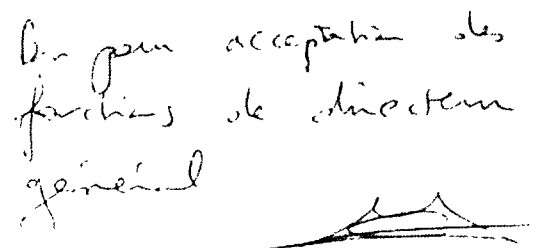 Bon pour acceptation des
fonctions de directeur
général